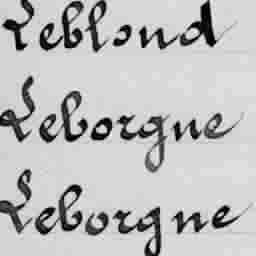 Leblond
Leborgne
Leborgne